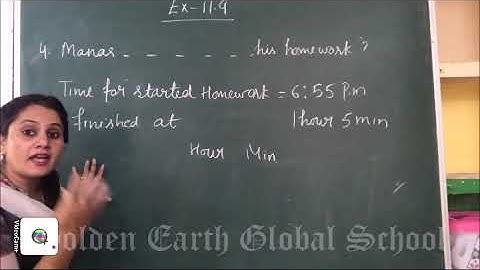 Ex-11.4
4. Manas _ _ _ _ _ _ his homework ?
Time for started Homework = 6:55 P.m
finished at 1hour 5min
Hour Min
Golden Earth Global School
VideoCam+